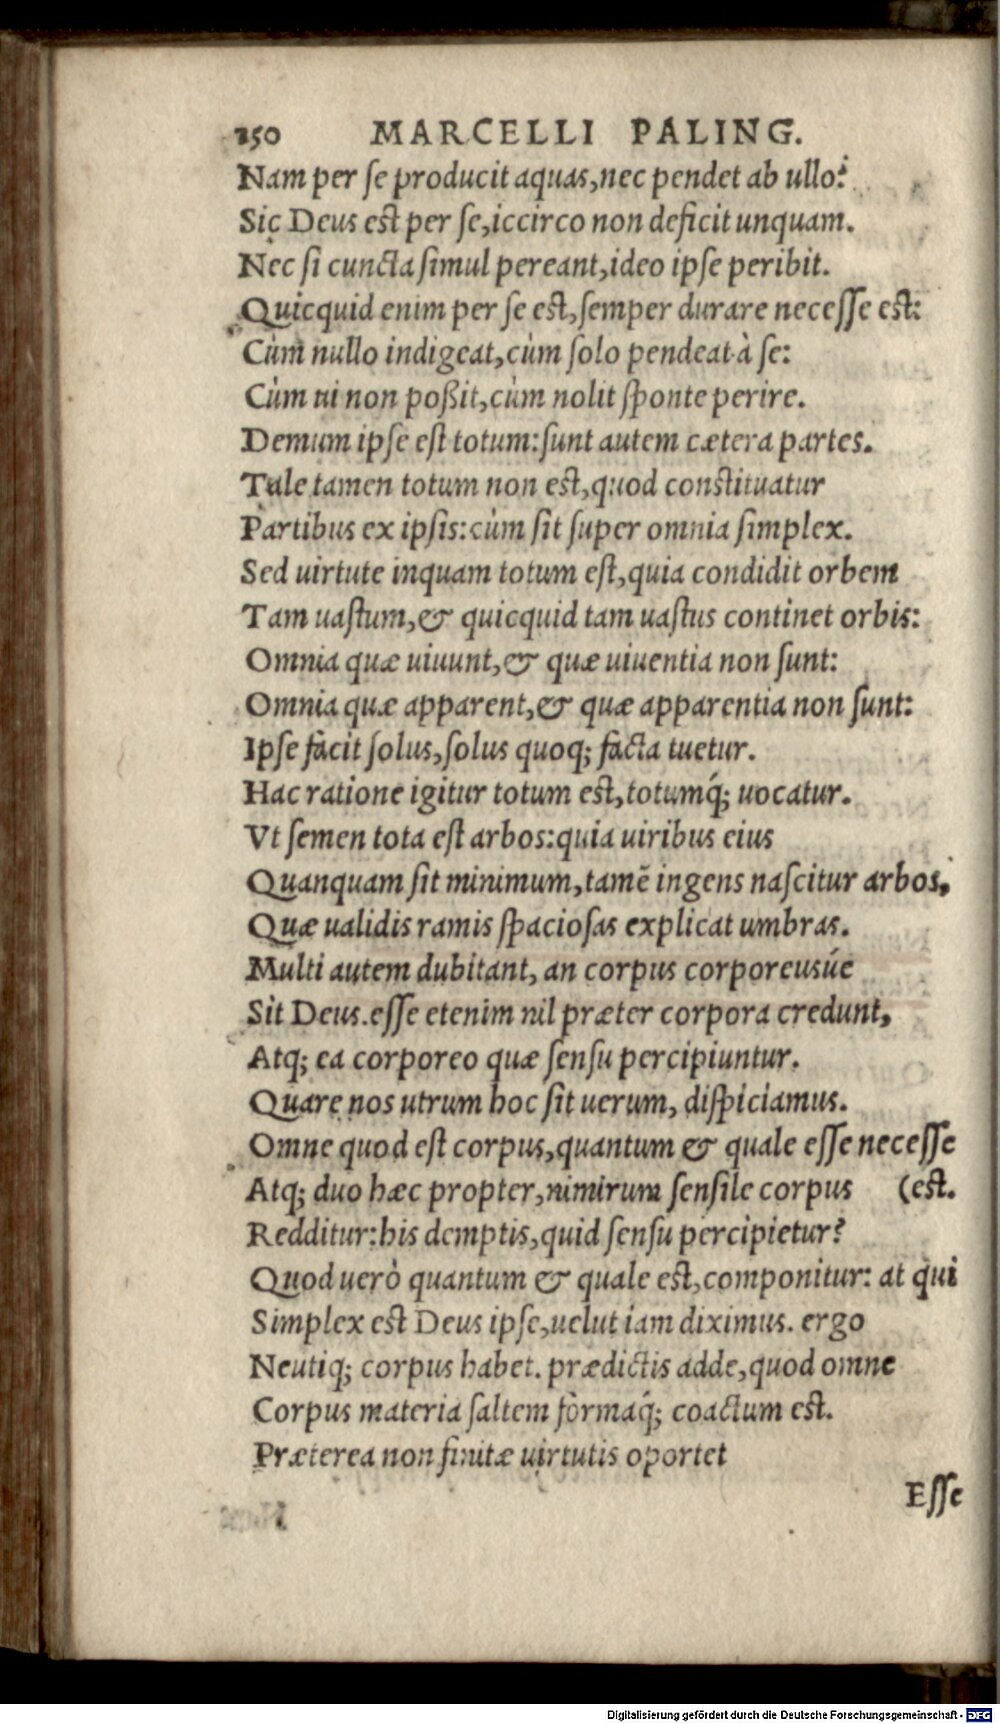 250 MARCELLI PALING.
Nam per ſe producit aquas, nec pendet ab ullo?
Sic Deus eſt per ſe, iccirco non deficit unquam.
Nec ſi cuncta ſimul pereant, ideo ipſe peribit.
Quicquid enim per ſe eſt, ſemper durare neceſſe eſt:
Cùm nullo indigeat, cùm ſolo pendeat à ſe:
Cùm ui non poßit, cùm nolit ſponte perire.
Demum ipſe eſt totum: ſunt autem cætera partes.
Tale tamen totum non eſt, quod conſtituatur
Partibus ex ipſis: cùm ſit ſuper omnia ſimplex.
Sed uirtute inquam totum eſt, quia condidit orbem
Tam uaſtum, & quicquid tam uaſtus continet orbis:
Omnia quæ uiuunt, & quæ uiuentia non ſunt:
Omnia quæ apparent, & quæ apparentia non ſunt:
Ipſe facit ſolus, ſolus quoq; facta tuetur.
Hac ratione igitur totum eſt, totumq́; uocatur.
Vt ſemen tota eſt arbos: quia uiribus eius
Quanquam ſit minimum, tamẽ ingens naſcitur arbos,
Quæ ualidis ramis ſpacioſas explicat umbras.
Multi autem dubitant, an corpus corporeusúe
Sit Deus. eſſe etenim nil præter corpora credunt,
Atq; ea corporeo quæ ſenſu percipiuntur.
Quare nos utrum hoc ſit uerum, diſpiciamus.
Omne quod eſt corpus, quantum & quale eſſe neceſſe
Atq; duo hæc propter, nimirum ſenſile corpus (eſt.
Redditur: his demptis, quid ſenſu percipietur?
Quod uerò quantum & quale eſt, componitur: at qui
Simplex eſt Deus ipſe, uelut iam diximus. ergo
Neutiq; corpus habet. prædictis adde, quod omne
Corpus materia ſaltem formaq́; coactum eſt.
Præterea non finitæ uirtutis oportet
Eſſe
Digitalisierung gefördert durch die Deutsche Forschungsgemeinschaft - DFG